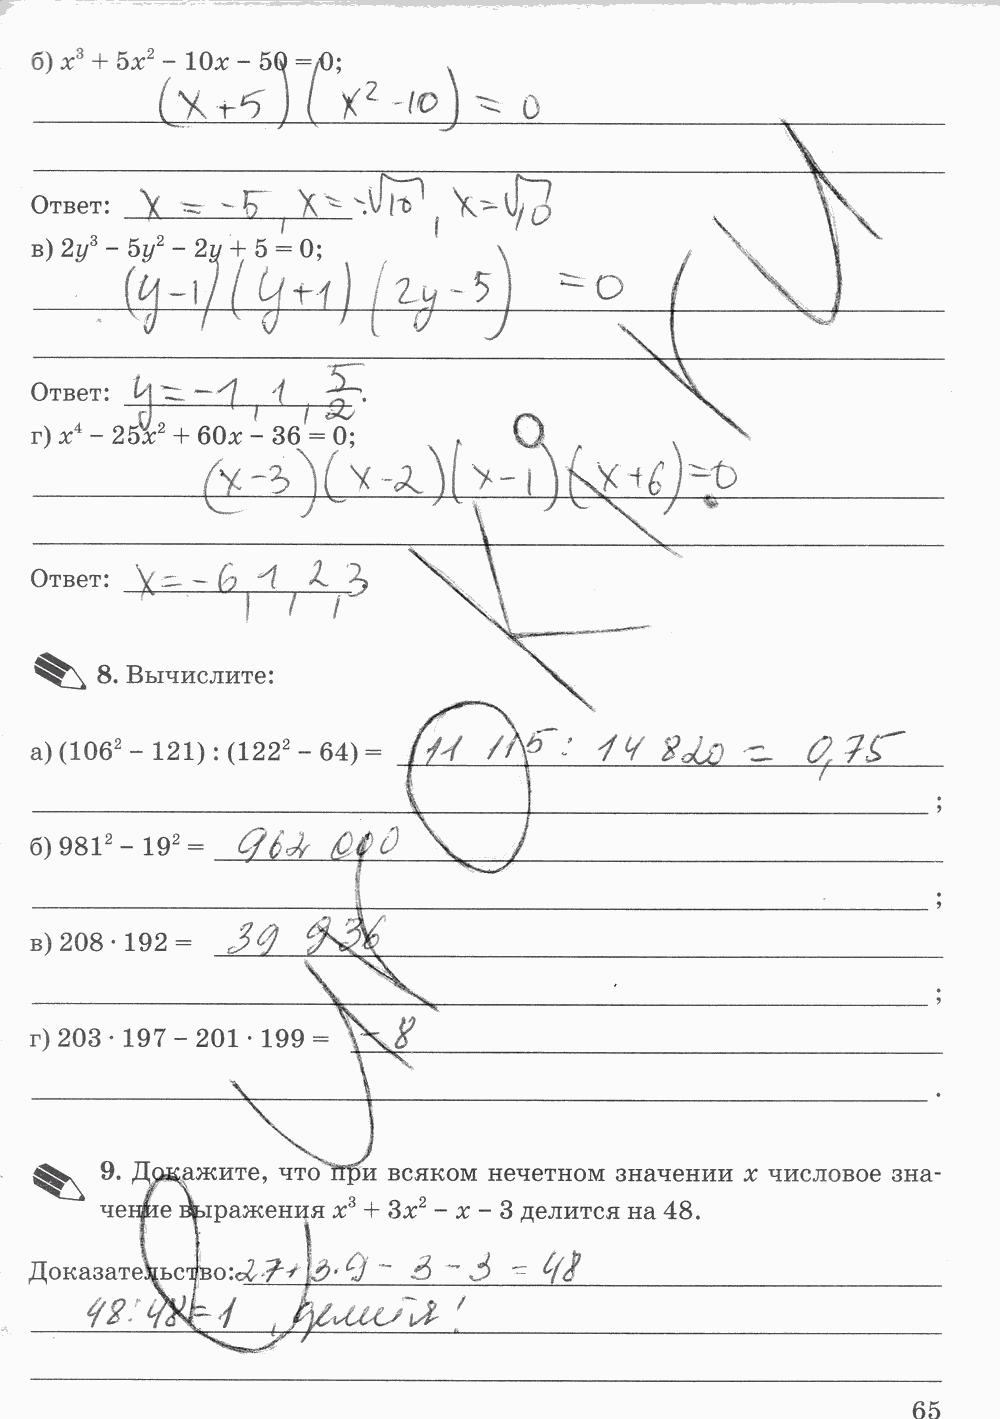 б) x³ + 5x² − 10x − 50 = 0;
(x+5) (x² -10) = 0
Ответ: x = -5, x = -√10, x = √10
в) 2y³ − 5y² − 2y + 5 = 0;
(y-1) (y+1) (2y-5) = 0
Ответ: y = -1, 1, 5/2.
г) x⁴ − 25x² + 60x − 36 = 0;
(x-3)(x-2)(x-1)(x+6)=0
Ответ: x = -6, 1, 2, 3
8. Вычислите:
а) (106² − 121) : (122² − 64) = 11 115 : 14 820 = 0,75
;
б) 981² − 19² = 962 000
;
в) 208 · 192 = 39 936
;
г) 203 · 197 − 201 · 199 = - 8
.
9. Докажите, что при всяком нечетном значении x числовое зна-
чение выражения x³ + 3x² − x − 3 делится на 48.
Доказательство: 27+3·9 - 3 - 3 = 48
48:48=1, делится!
65